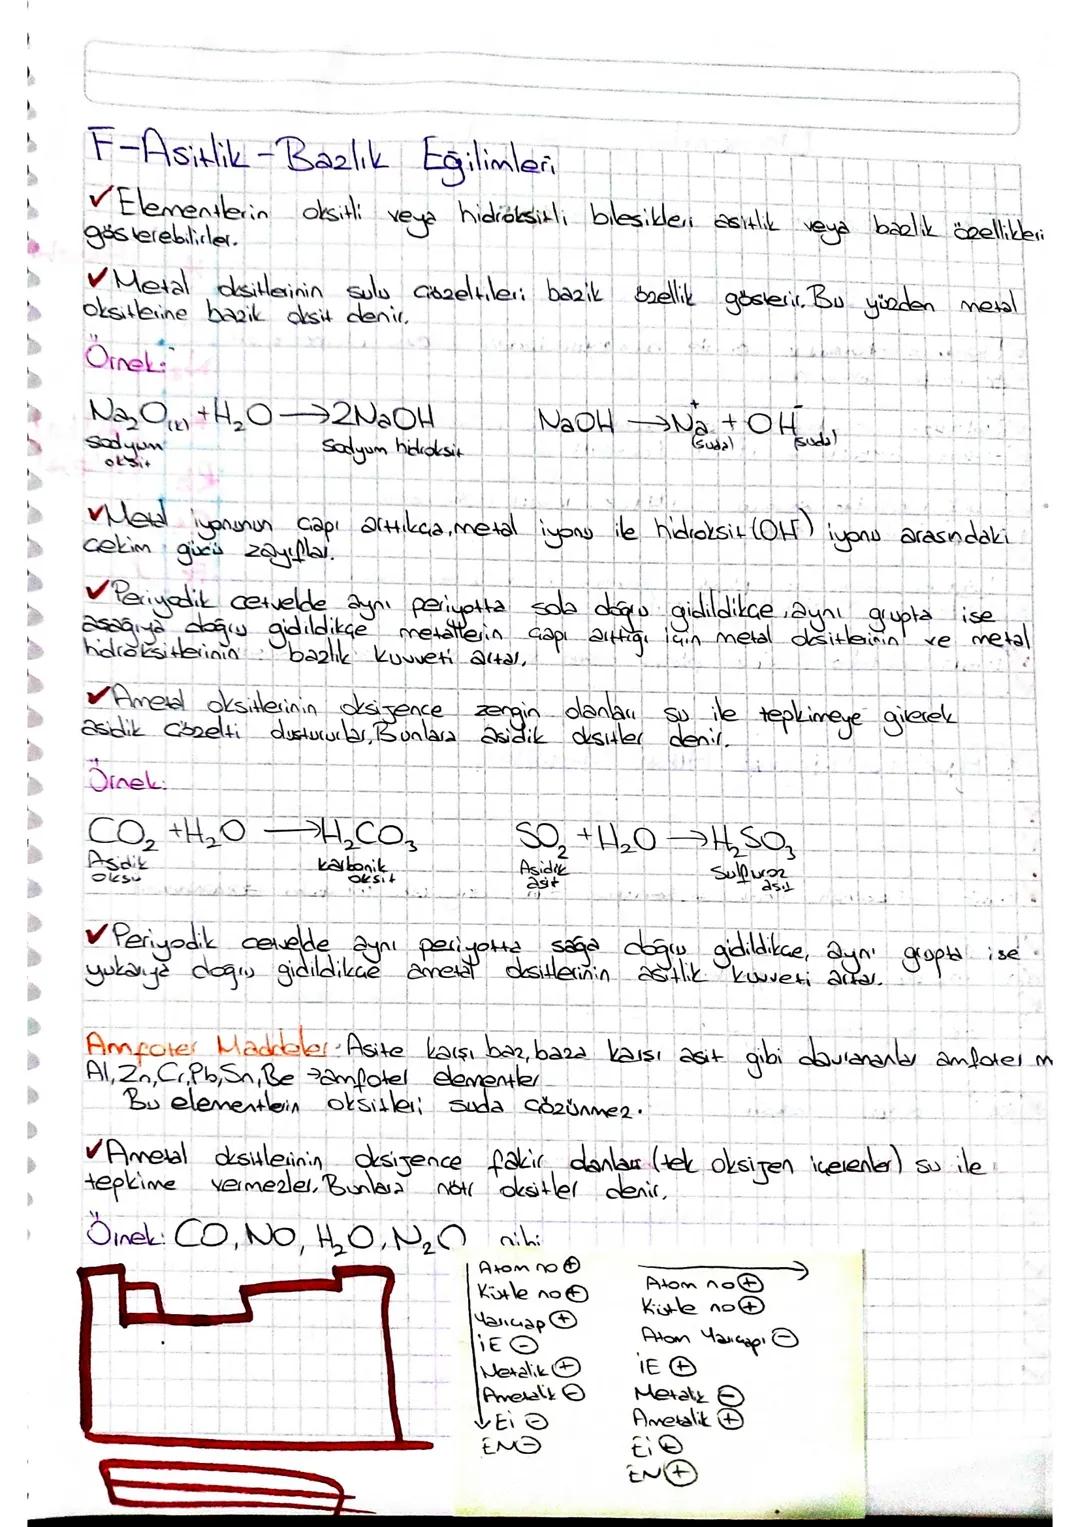 F-Asitlik-Bazlık Eğilimleri
✓Elementlerin oksitli veya hidroksitli bileşikleri asitlik veya bazlik özellikleri
gösterebilirler.
✓Metal oksitlerinin sulu çözeltileri bazik özellik gösterir. Bu yüzden metal
oksitlerine bazik oksit denir.
Örnek:
Na₂O(k) + H₂O → 2NaOH NaOH → Na⁺(suda) + OH⁻(suda)
sodyum oksit Sodyum hidroksit
✓Metal iyonunun çapı arttıkça, metal iyonu ile hidroksit (OH⁻) iyonu arasındaki
çekim gücü zayıflar.
✓Periyodik cetvelde aynı periyotta sola doğru gidildikçe, aynı grupta ise
aşağıya doğru gidildikçe metallerin çapı arttığı için metal oksitlerinin ve metal
hidroksitlerinin bazlık kuvveti artar.
✓Ametal oksitlerinin oksijence zengin olanları su ile tepkimeye girerek
asidik çözelti oluştururlar. Bunlara asidik oksitler denir.
Örnek:
CO₂ + H₂O → H₂CO₃ SO₂ + H₂O → H₂SO₃
Asdik karbonik Asidik Sulfuroz
oksit asit asit
✓Periyodik cetvelde aynı periyotta sağa doğru gidildikçe, aynı grupta ise
yukarıya doğru gidildikçe ametal oksitlerinin asitlik kuvveti artar.
Amfoter Maddeler: Asite karşı baz, baza karşı asit gibi davrananlar amfoter m
Al, Zn, Cr, Pb, Sn, Be → amfoter elementler
Bu elementlerin oksitleri suda çözünmez.
✓Ametal oksitlerinin oksijence fakir olanları (tek oksijen içerenler) su ile
tepkime vermezler. Bunlara nötr oksitler denir.
Örnek: CO, NO, H₂O, N₂O
Atom no ⊕
Kütle no ⊕
Yarıçap ⊕
İE ⊖
Metalik ⊕
Ametalik ⊖
Ei ⊖
EN ⊖
Atom no ⊕
Kütle no ⊕
Atom Yarıçapı ⊖
İE ⊕
Metalik ⊖
Ametalik ⊕
Ei ⊕
EN ⊕